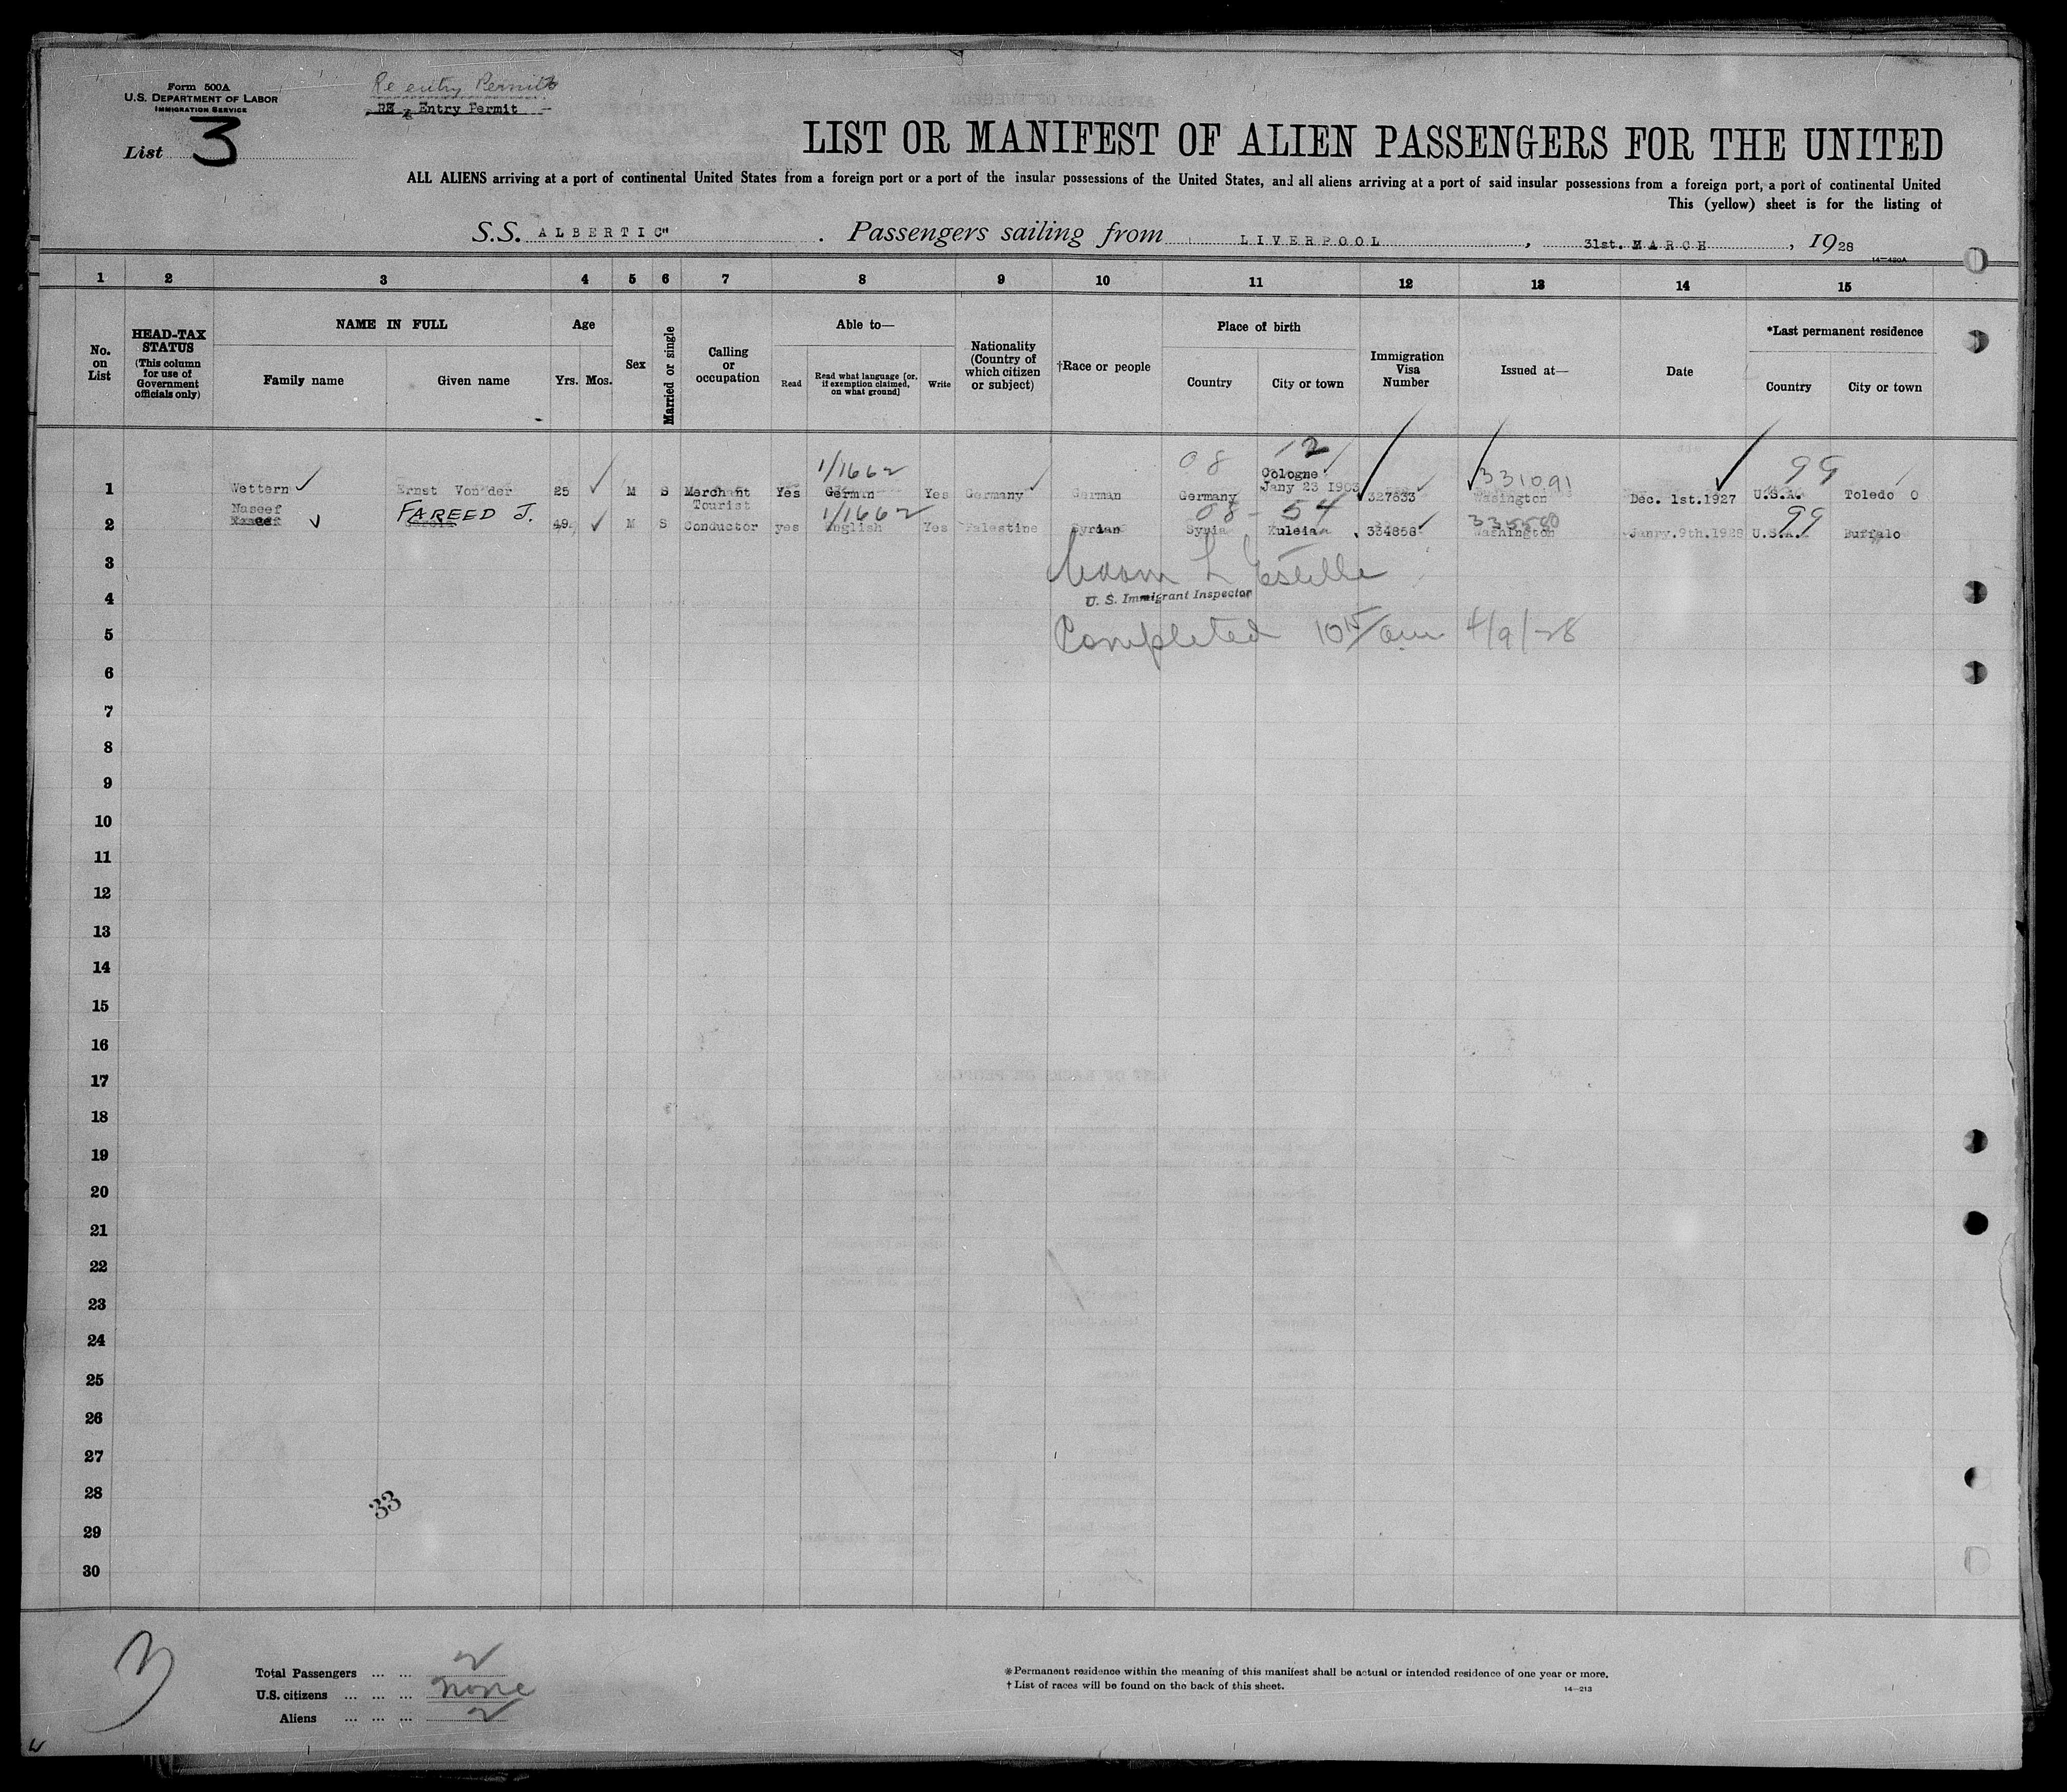 Form 500A
U.S. DEPARTMENT OF LABOR
IMMIGRATION SERVICE
Re entry Permits
RE Entry Permit
List 3
LIST OR MANIFEST OF ALIEN PASSENGERS FOR THE UNITED
ALL ALIENS arriving at a port of continental United States from a foreign port or a port of the insular possessions of the United States, and all aliens arriving at a port of said insular possessions from a foreign port, a port of continental United
This (yellow) sheet is for the listing of
S.S. ALBERTIC" . Passengers sailing from LIVERPOOL , 31st. MARCH , 1928
14—480A
1 2 3 4 5 6 7 8 9 10 11 12 13 14 15
No. on List
HEAD-TAX STATUS
(This column for use of Government officials only)
NAME IN FULL
Family name
Given name
Age
Yrs. Mos.
Sex
Married or single
Calling or occupation
Able to—
Read
Read what language [or, if exemption claimed, on what ground]
Write
Nationality (Country of which citizen or subject)
†Race or people
Place of birth
Country
City or town
Immigration Visa Number
Issued at—
Date
*Last permanent residence
Country
City or town
1/1662 08 12 331091 99
Cologne
1 Wettern Ernst Von der 25 M S Merchant Yes German Yes Germany German Germany Jany 23 1903 327633 Wasington Dec. 1st.1927 U.S.A. Toledo O
Tourist
Naseef FAREED J. 1/1662 08 - 54 335580 99
2 49 M S Conductor yes English Yes Palestine Syrian Syria 334858 Washington Janry.9th.1928 U.S.A. Buffalo
3
L Estelle
4
U. S. Immigrant Inspector
5
Completed 10 15/am 4/9/28
6
7
8
9
10
11
12
13
14
15
16
17
18
19
20
21
22
23
24
25
26
27
28
33
29
30
3
Total Passengers ... ... 2
U.S. citizens ... ... ... none
Aliens ... ... ... 2
*Permanent residence within the meaning of this manifest shall be actual or intended residence of one year or more.
† List of races will be found on the back of this sheet.
14—213